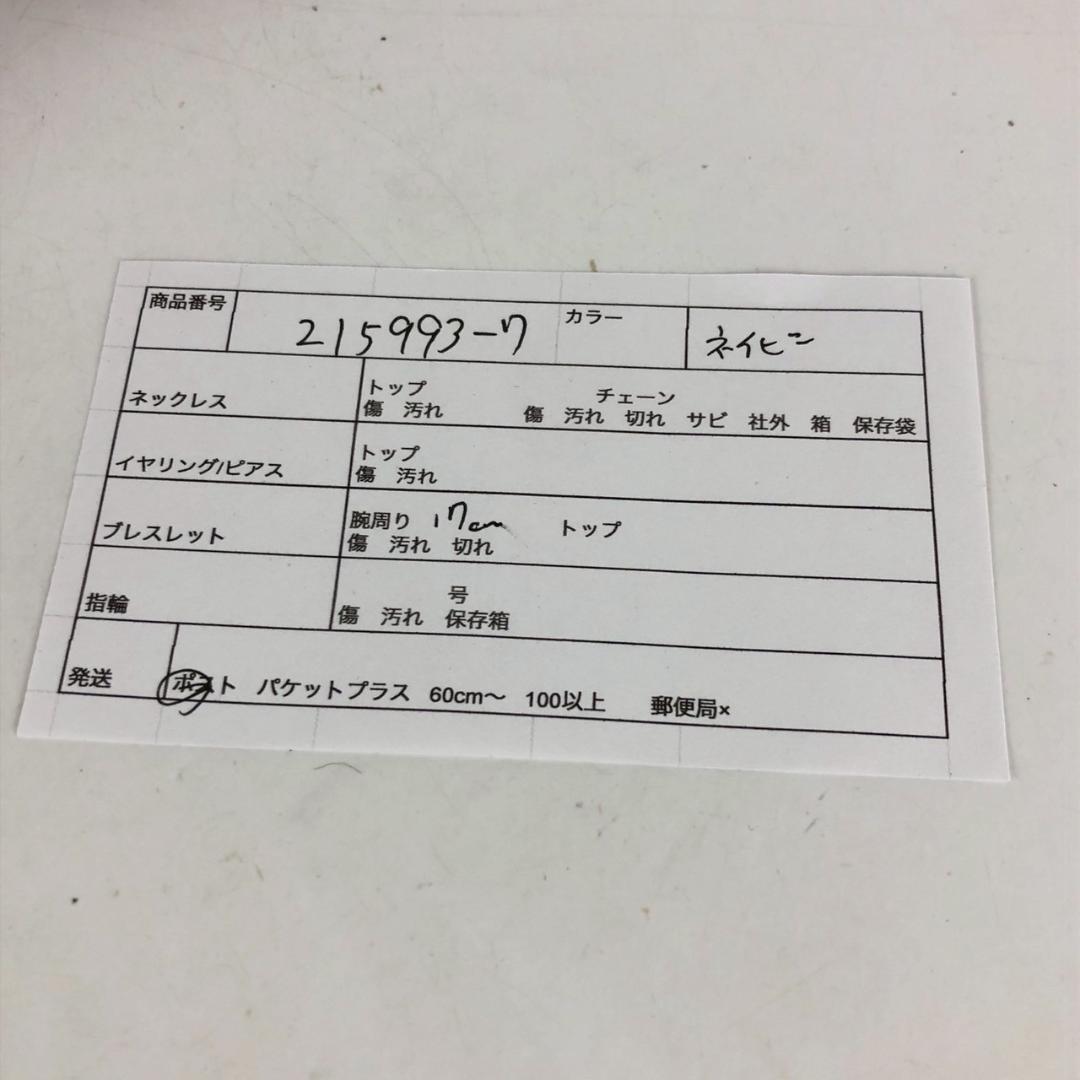 商品番号 215993-7 カラー ネイビー
ネックレス トップ チェーン
傷 汚れ 傷 汚れ 切れ サビ 社外 箱 保存袋
イヤリング/ピアス トップ
傷 汚れ
ブレスレット 腕周り 17cm トップ
傷 汚れ 切れ
指輪 号
傷 汚れ 保存箱
発送 ポスト パケットプラス 60cm〜 100以上 郵便局×